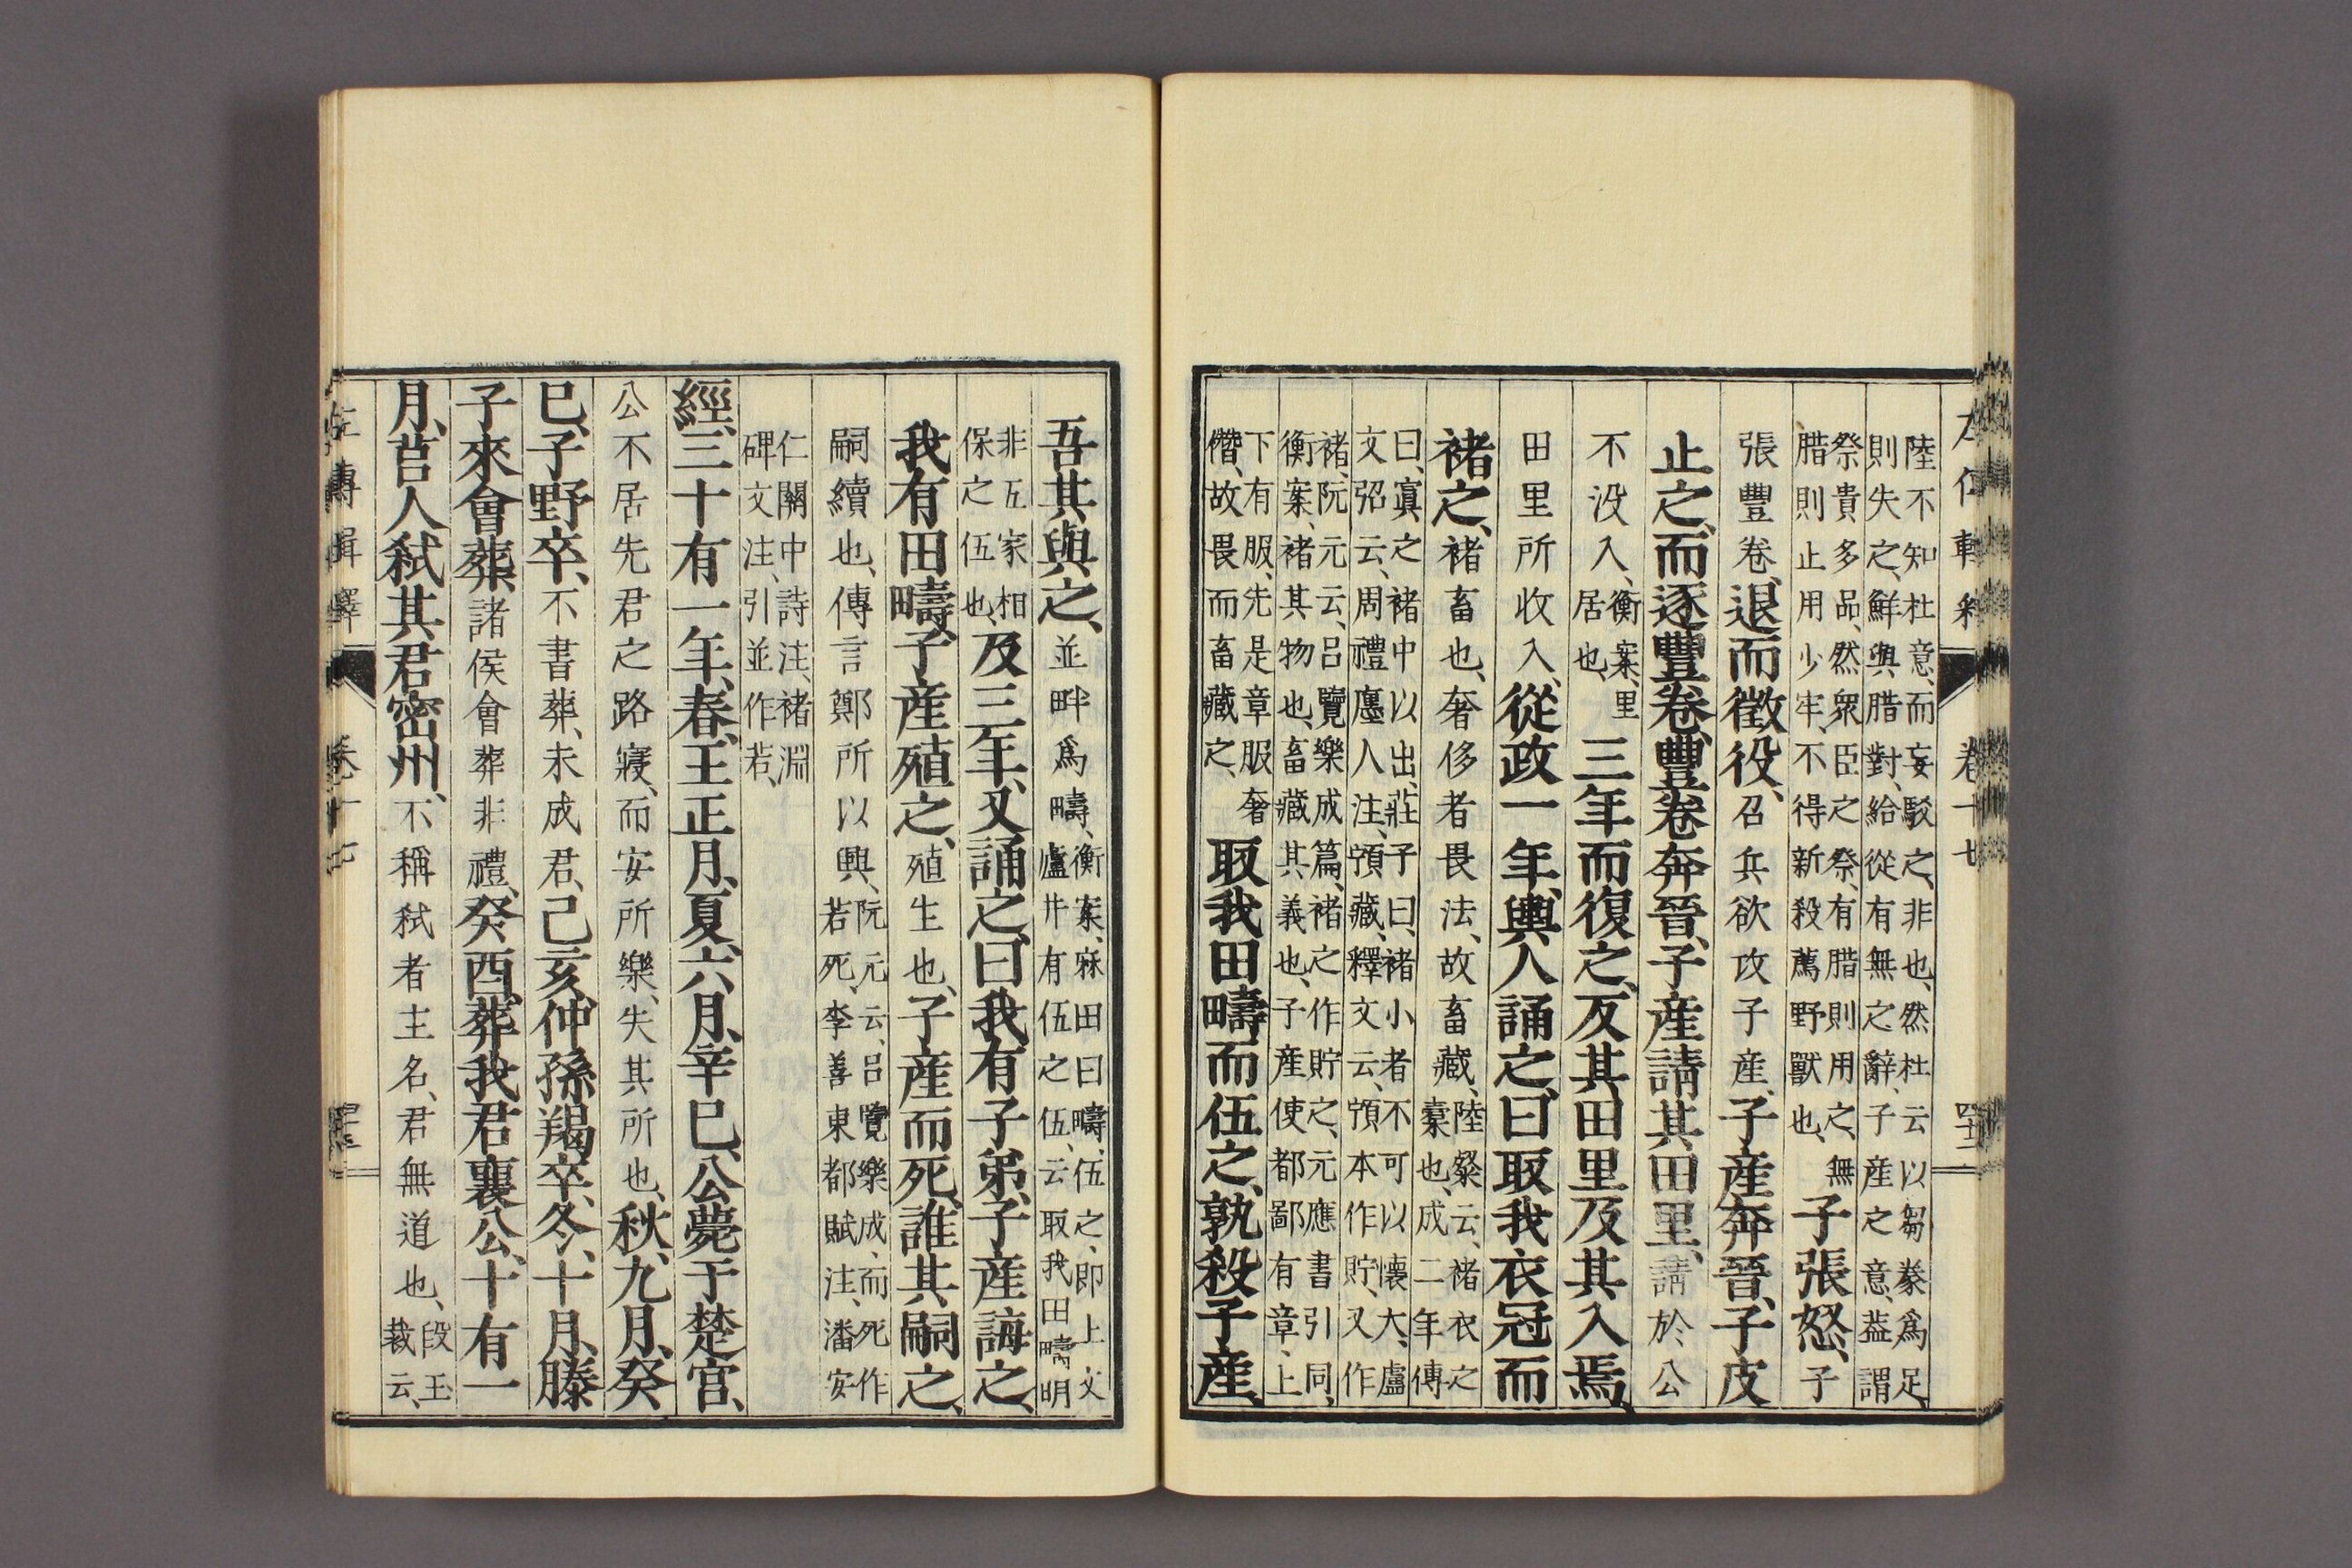 左傳輯釋 卷十七
陸不知杜意、而妄駁之、非也、然杜云以芻豢爲足、
則失之、鮮與腊對、給從有無之辭、子産之意、葢謂
祭貴多品、然衆臣之祭、有腊則用之、無
腊則止用少牢、不得新殺薦野獸也、
子張怒、子
張豐卷、退而徵役、召兵欲攻子産、子産奔晉、子皮
止之、而逐豐卷、豐卷奔晉、子産請其田里、請於公
不没入、
衡案、里
居也、
三年而復之、反其田里及其入焉、
田里所收入、從政一年、輿人誦之、曰取我衣冠而
褚之、褚畜也、奢侈者畏法、故畜藏、
陸粲云、褚衣之
橐也、成二年傳
曰、寘之褚中以出、莊子曰、褚小者不可以懷大、盧
文弨云、周禮廛人注、㡒藏、釋文云、㡒本作貯、又作
褚、阮元云、呂覽樂成篇、褚之作貯之、元應書引同、
衡案、褚其物也、畜藏其義也、子産使都鄙有章、上
下有服、先是章服奢
僭、故畏而畜藏之、
取我田疇而伍之、孰殺子産、
吾其與之、並畔爲疇、
衡案、寐田曰疇、伍之、即上文
廬井有伍之伍、云取我田疇、明
非五家相
保之伍也、
及三年、又誦之、曰我有子弟、子産誨之、
我有田疇、子産殖之、殖生也、子産而死、誰其嗣之、
嗣續也、傳言鄭所以興、
阮元云、呂覽樂成、而死作
若死、李善東都賦注、潘安
仁關中詩注、褚淵
碑文注、引並作若、
經、三十有一年、春、王正月、夏、六月、辛巳、公薨于楚宮、
公不居先君之路寢、而安所樂、失其所也、秋、九月、癸
巳、子野卒、不書葬、未成君、己亥、仲孫羯卒、冬、十月、滕
子來會葬、諸侯會葬非禮、癸酉、葬我君襄公、十有一
月、莒人弒其君密州、不稱弒者主名、君無道也、
段玉
裁云、
左傳輯釋 卷十七